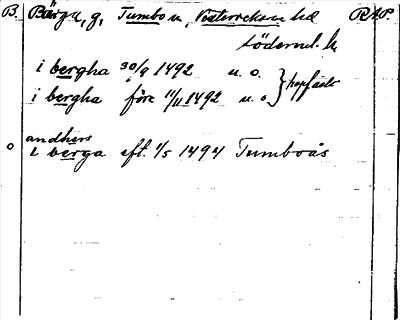 B. Bärga, g, Tumbo sn, Västerrekarne hd RAP.
Södermanl. l.
i bergha 30/9 1492 u. o.
i bergha före 11/11 1492 u. o.
andhers
i berga eft. 1/5 1494 Tumboås